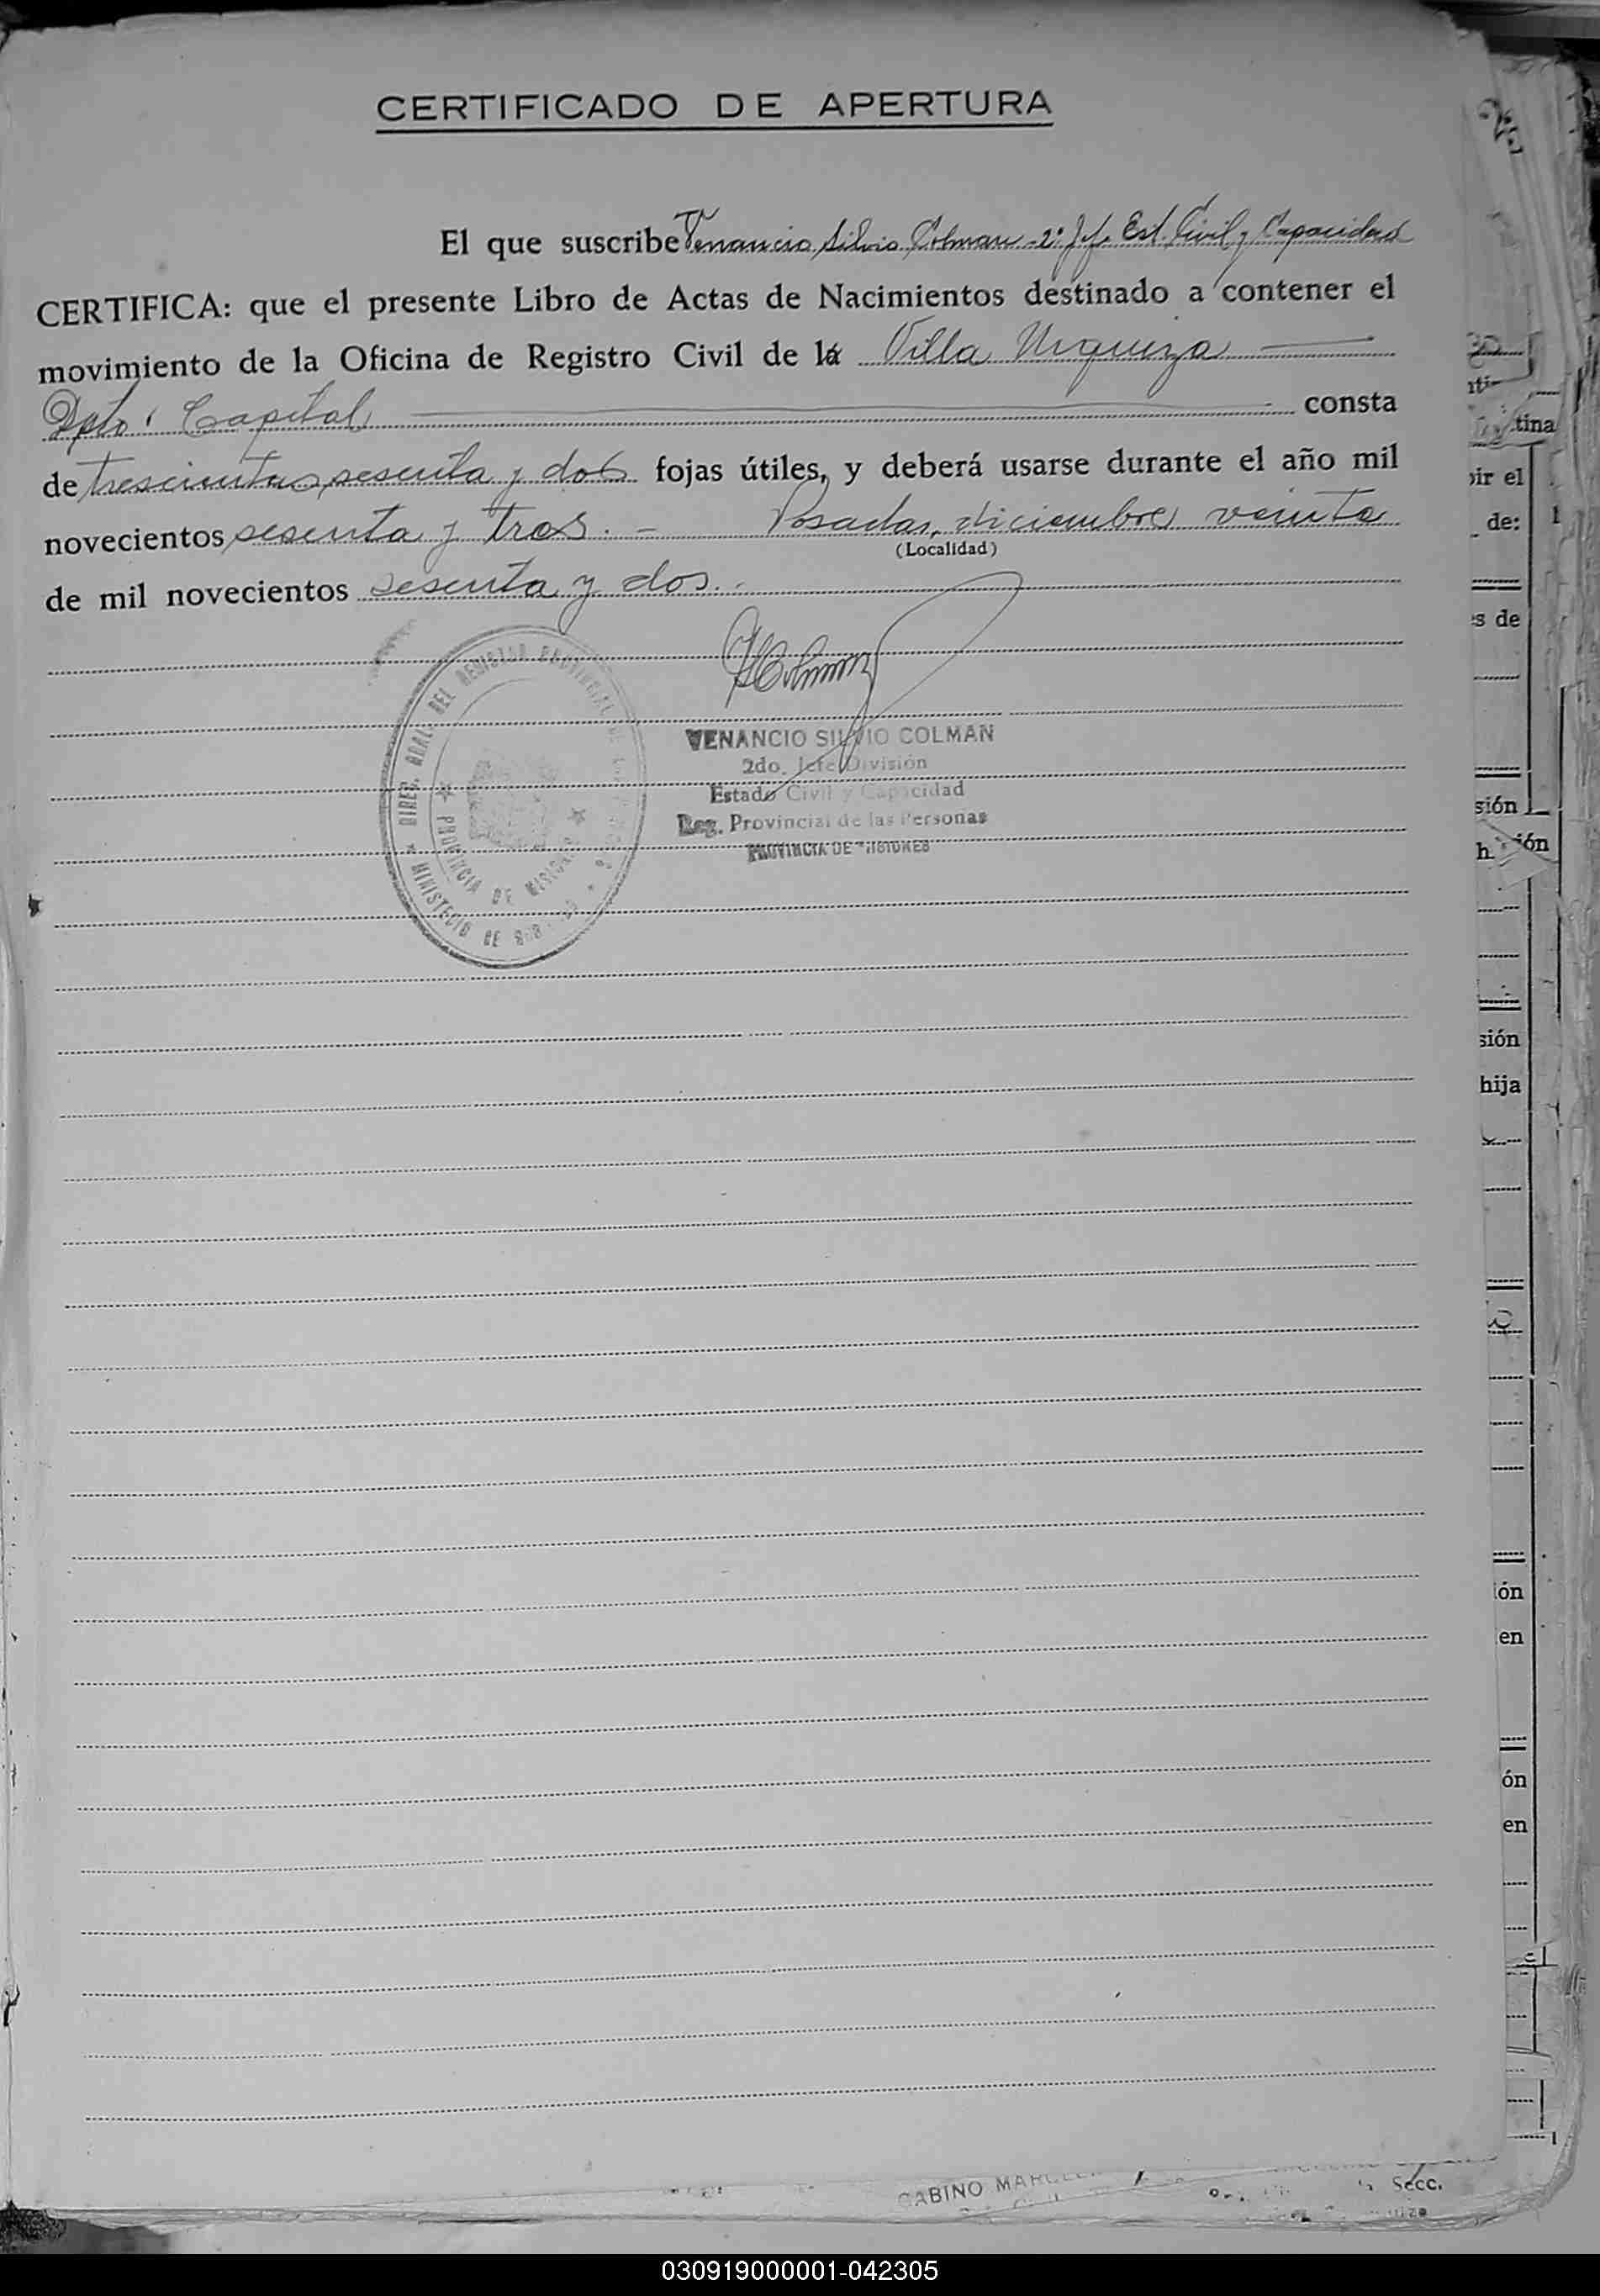 CERTIFICADO DE APERTURA
El que suscribe Venancio Silvio Colman - 2º Jef. Est. Civil y Capacidad
CERTIFICA: que el presente Libro de Actas de Nacimientos destinado a contener el
movimiento de la Oficina de Registro Civil de la Villa Urquiza
Dpto. Capital consta
de trescientas sesenta y dos fojas útiles, y deberá usarse durante el año mil
novecientos sesenta y tres. - Posadas, diciembre veinte
(Localidad)
de mil novecientos sesenta y dos.
VENANCIO SILVIO COLMAN
2do. Jefe División
Estado Civil y Capacidad
Reg. Provincial de las Personas
PROVINCIA DE MISIONES
DIREC. GRAL. DEL REGISTRO PROVINCIAL DE
MINISTERIO DE
PROVINCIA DE MISIONES
tina
ir el
de:
s de
sión
ión
sión
hija
ón
en
ón
en
GABINO
Secc.
030919000001-042305